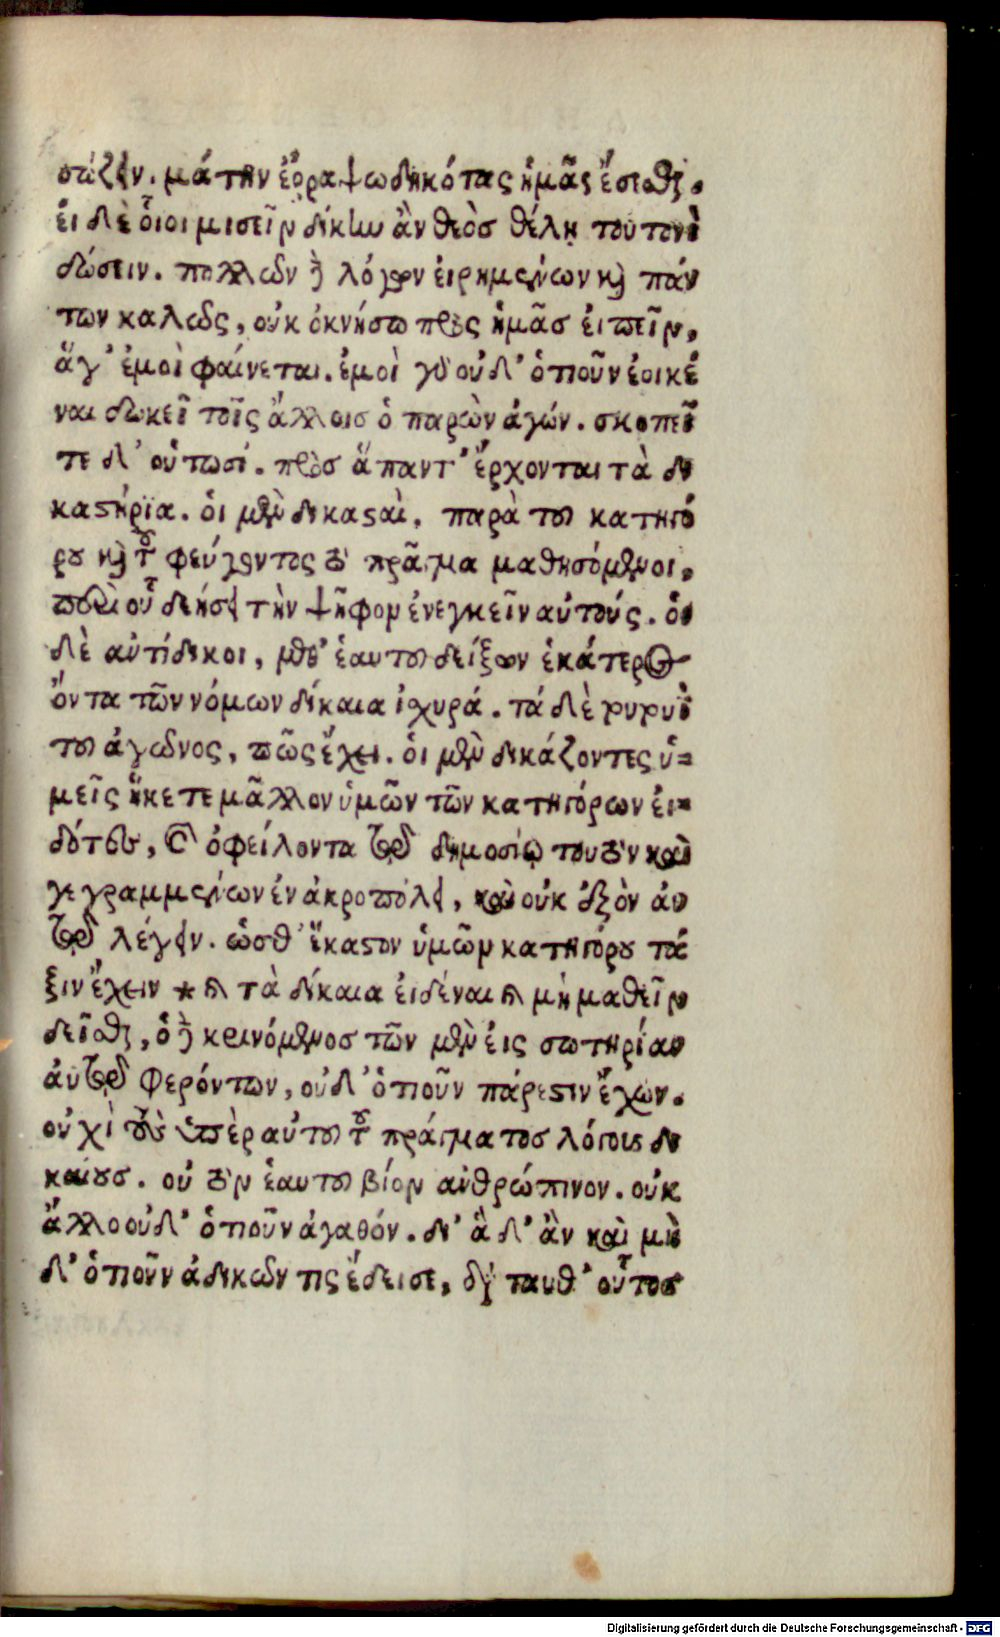 σώζειν. μάτην ἐῤῥαψωδηκότας ἡμᾶς ἔσεσθαι.
εἰ δὲ οἷοι μισεῖν δίκην ἂν θεὸσ θέλη τοῦτον
δώσειν. πολλῶν δὲ λόγων εἰρημένων καὶ πάν
των καλῶς, οὐκ ὀκνήσω πρὸς ἡμᾶσ εἰπεῖν,
ἅγ' ἐμοὶ φαίνεται. ἐμοὶ γὰρ οὐδ' ὁτιοῦν ἐοικέ
ναι δοκεῖ τοῖς ἄλλοισ ὁ παρὼν ἀγών. σκοπεῖ
τε δ' οὑτωσί. πρὸσ ἅπαντ' ἔρχονται τὰ δι
καστήρϊα. οἱ μὲν δικασταὶ, παρὰ τοῦ κατηγό
ρου καὶ τοῦ φεύγοντος τὸ πρᾶγμα μαθησόμενοι,
περὶ οὗ δεήσει τὴν ψῆφον ἐνεγκεῖν αὐτούς. οἱ
δὲ ἀντίδικοι, μεθ' ἑαυτοῦ δείξων ἑκάτερος
ὄντα τῶν νόμων δίκαια ἰχυρά. τά δὲ ρυρυῒ
τοῦ ἀγῶνος, πῶς ἔχει. οἱ μὲν δικάζοντες ὑ=
μεῖς ἥκετε μᾶλλον ὑμῶν τῶν κατηγόρων εἰ=
δότες, ὀφείλοντα τῷ δημοσίῳ τουτὸν καὶ
γεγραμμένων ἐν ἀκροπόλει, καὶ οὐκ ἐξὸν αὐ
τῷ λέγειν. ὡσθ' ἕκαστον ὑμῶν κατηγόρου τά
ξιν ἔχειν * τὰ δίκαια εἰδέναι μὴ μαθεῖν
δεῖσθαι, ὁ δὲ κρινόμενοσ τῶν μὲν εἰς σωτηρίαν
αὐτῷ φερόντων, οὐδ' ὁτιοῦν πάρεστιν ἔχων.
οὐχὶ τοὺς ὑπὲρ αὐτοῦ τοῦ πράγματοσ λόγους δι
καίουσ. οὐ τὸν ἑαυτοῦ βίον ἀνθρώπινον. οὐκ
ἄλλο οὐδ' ὁτιοῦν ἀγαθόν. δι' ἃ δ' ἂν καὶ μη
δ' ὁτιοῦν ἀδικῶν τις ἔδεισε, διὰ ταυθ' οὗτοσ
Digitalisierung gefördert durch die Deutsche Forschungsgemeinschaft - DFG